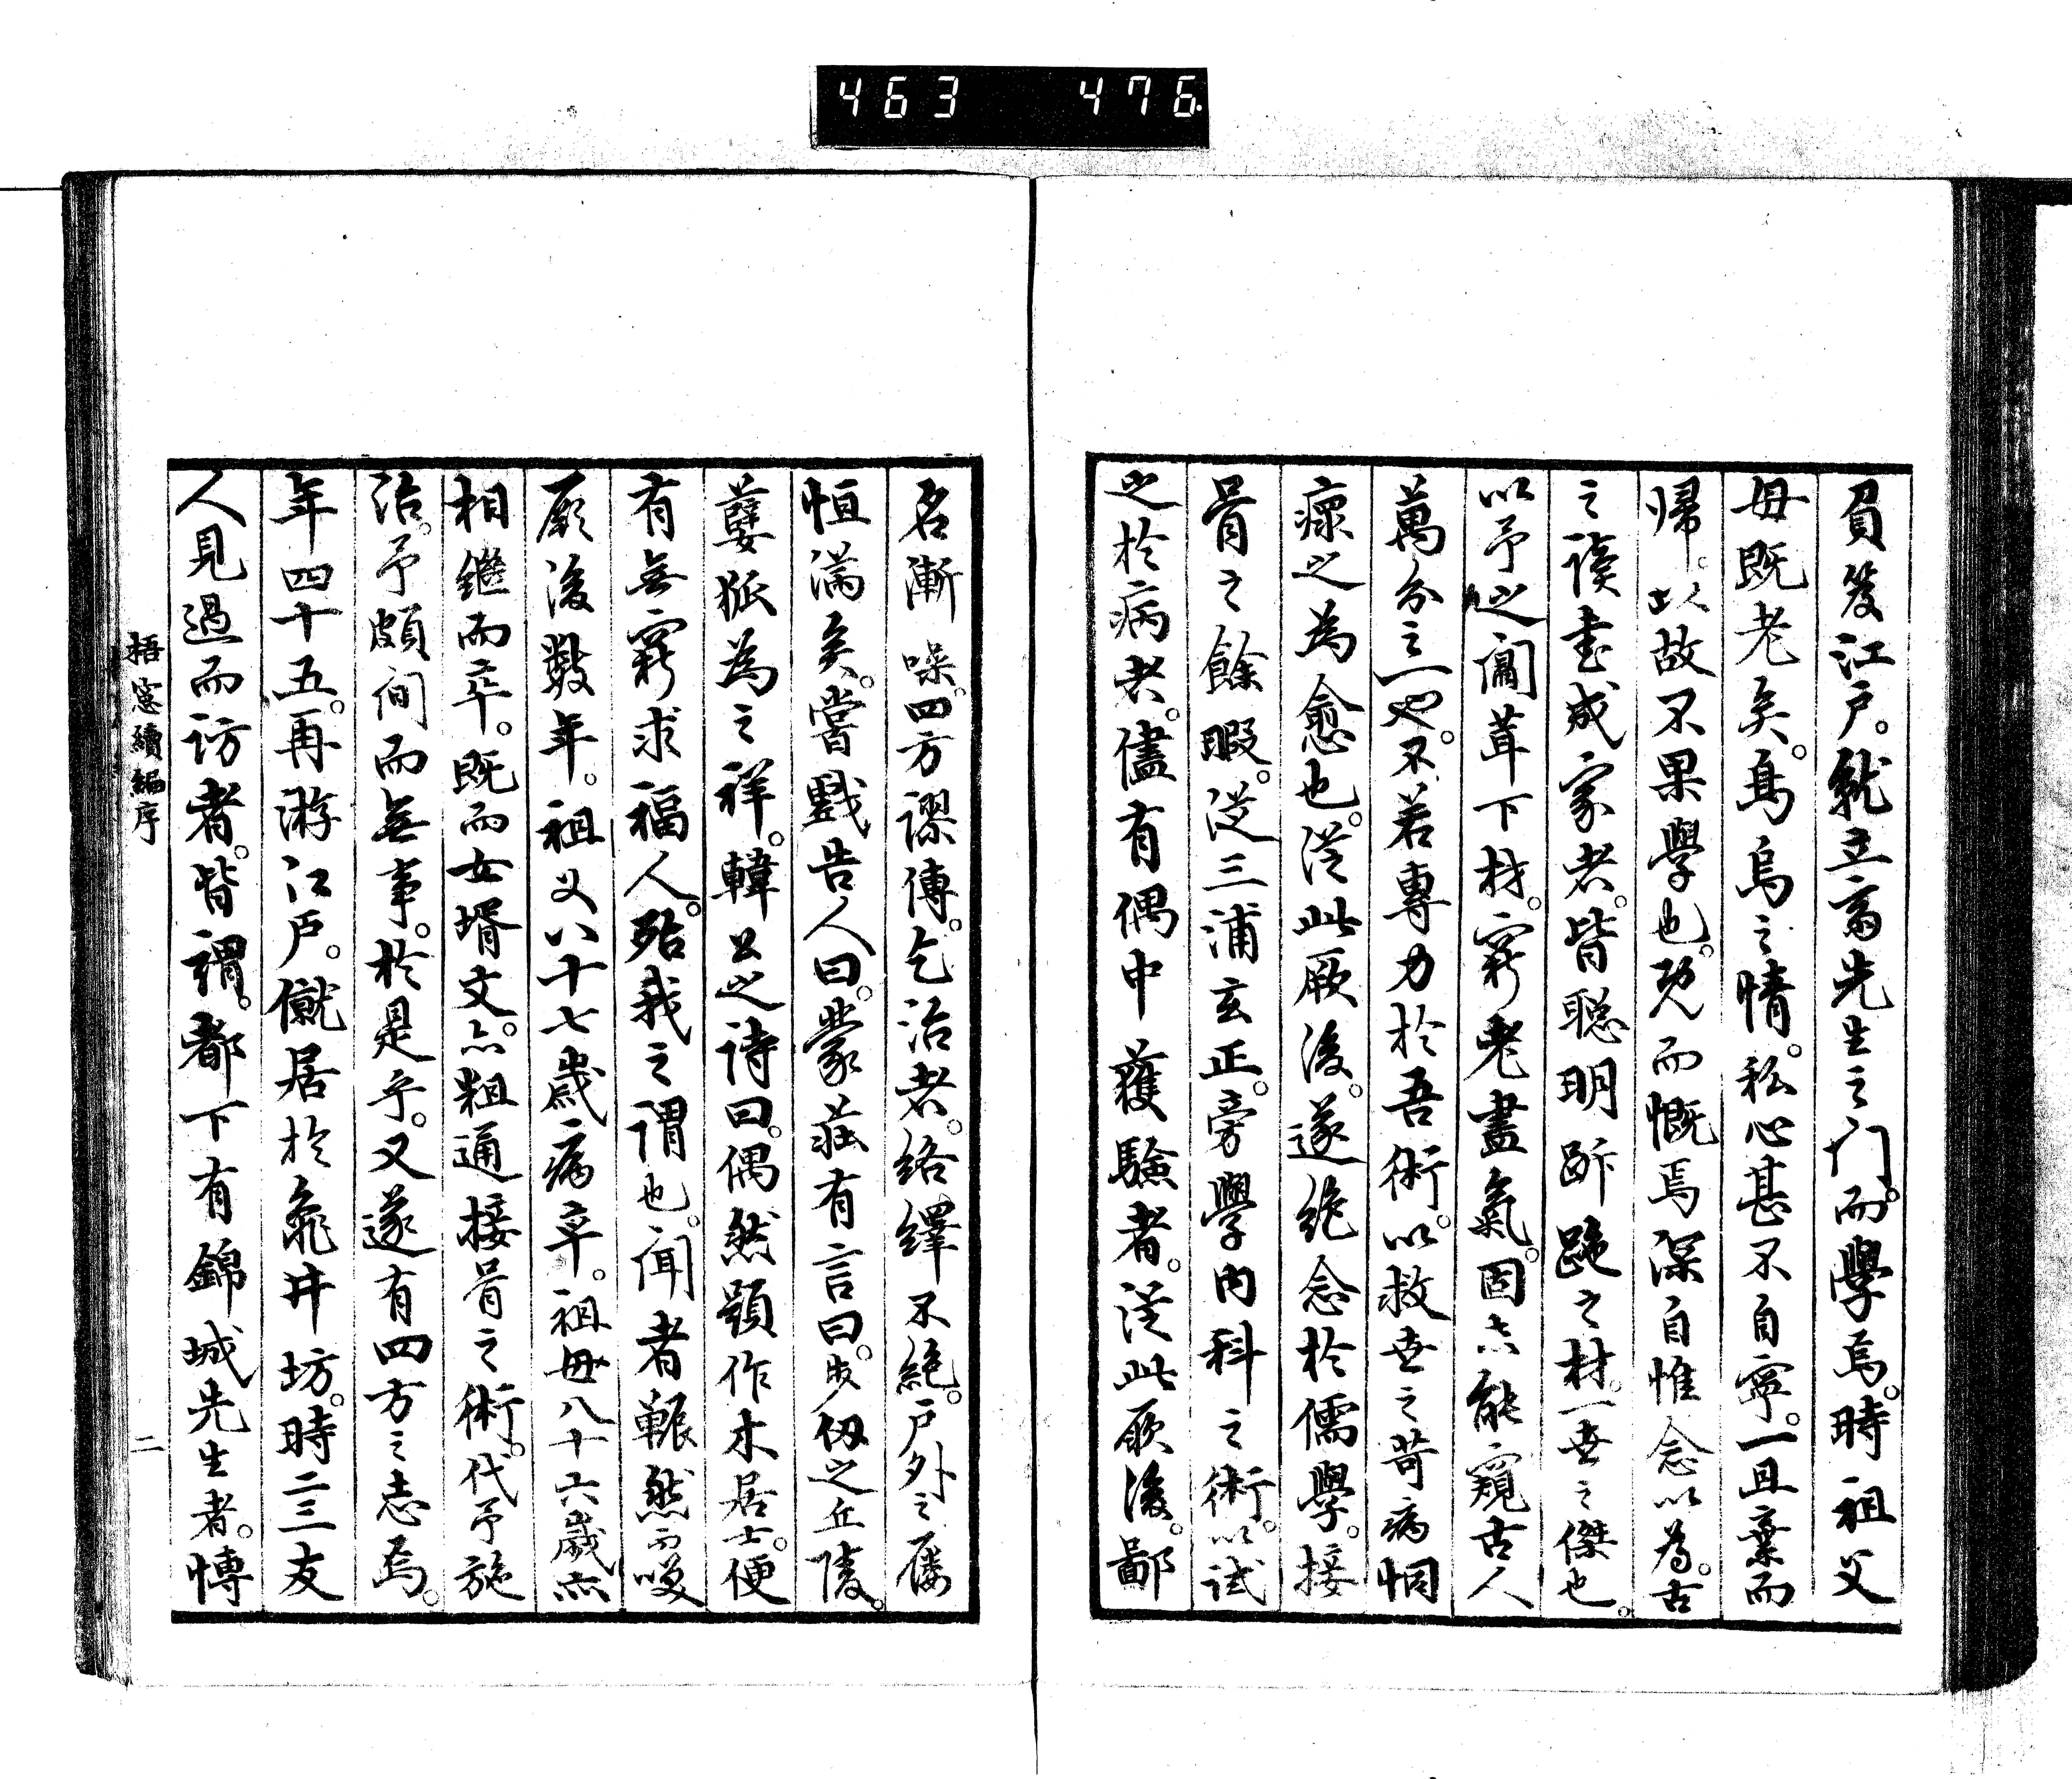 463 476
負笈江戶。就立斎先生之门。而學焉。時祖父
母既老矣。烏烏之情。私心甚不自寧。一旦棄而
帰。以故不果學也。既而慨焉深自惟念以為。古
之讀書成家者。皆聡明跅跪之材。一世之傑也。
以予之闒茸下材。窮老盡氣。固亦能窺古人
萬分之一也。不若專力於吾術。以救世之苛病恫
瘝之為愈也。従此厥後。遂絶念於儒學。接
骨之餘暇。従三浦玄正。旁學内科之術。以試
之於病者。儘有偶中獲験者。従此厥後。鄙
名漸噪。四方謬傳。乞治者。絡繹不絶。戶外之屨
恒滿矣。嘗戲告人曰。蒙荘有言曰。步仭之丘陵。
孽狐為之祥。韓公之诗曰。偶然題作木居士。便
有無窮求福人。殆我之謂也。闻者冁然而唉
厥後數年。祖父八十七歳病卒。祖母八十六歳亦
相継而卒。既而女壻文。亦粗通接骨之術。代予施
治。予頗间而無事。於是乎。又遂有四方之志焉。
年四十五。再游江戶。僦居於龜井坊。時二三友
人見過而访者。皆謂。都下有錦城先生者。博
梧窓續編序 二